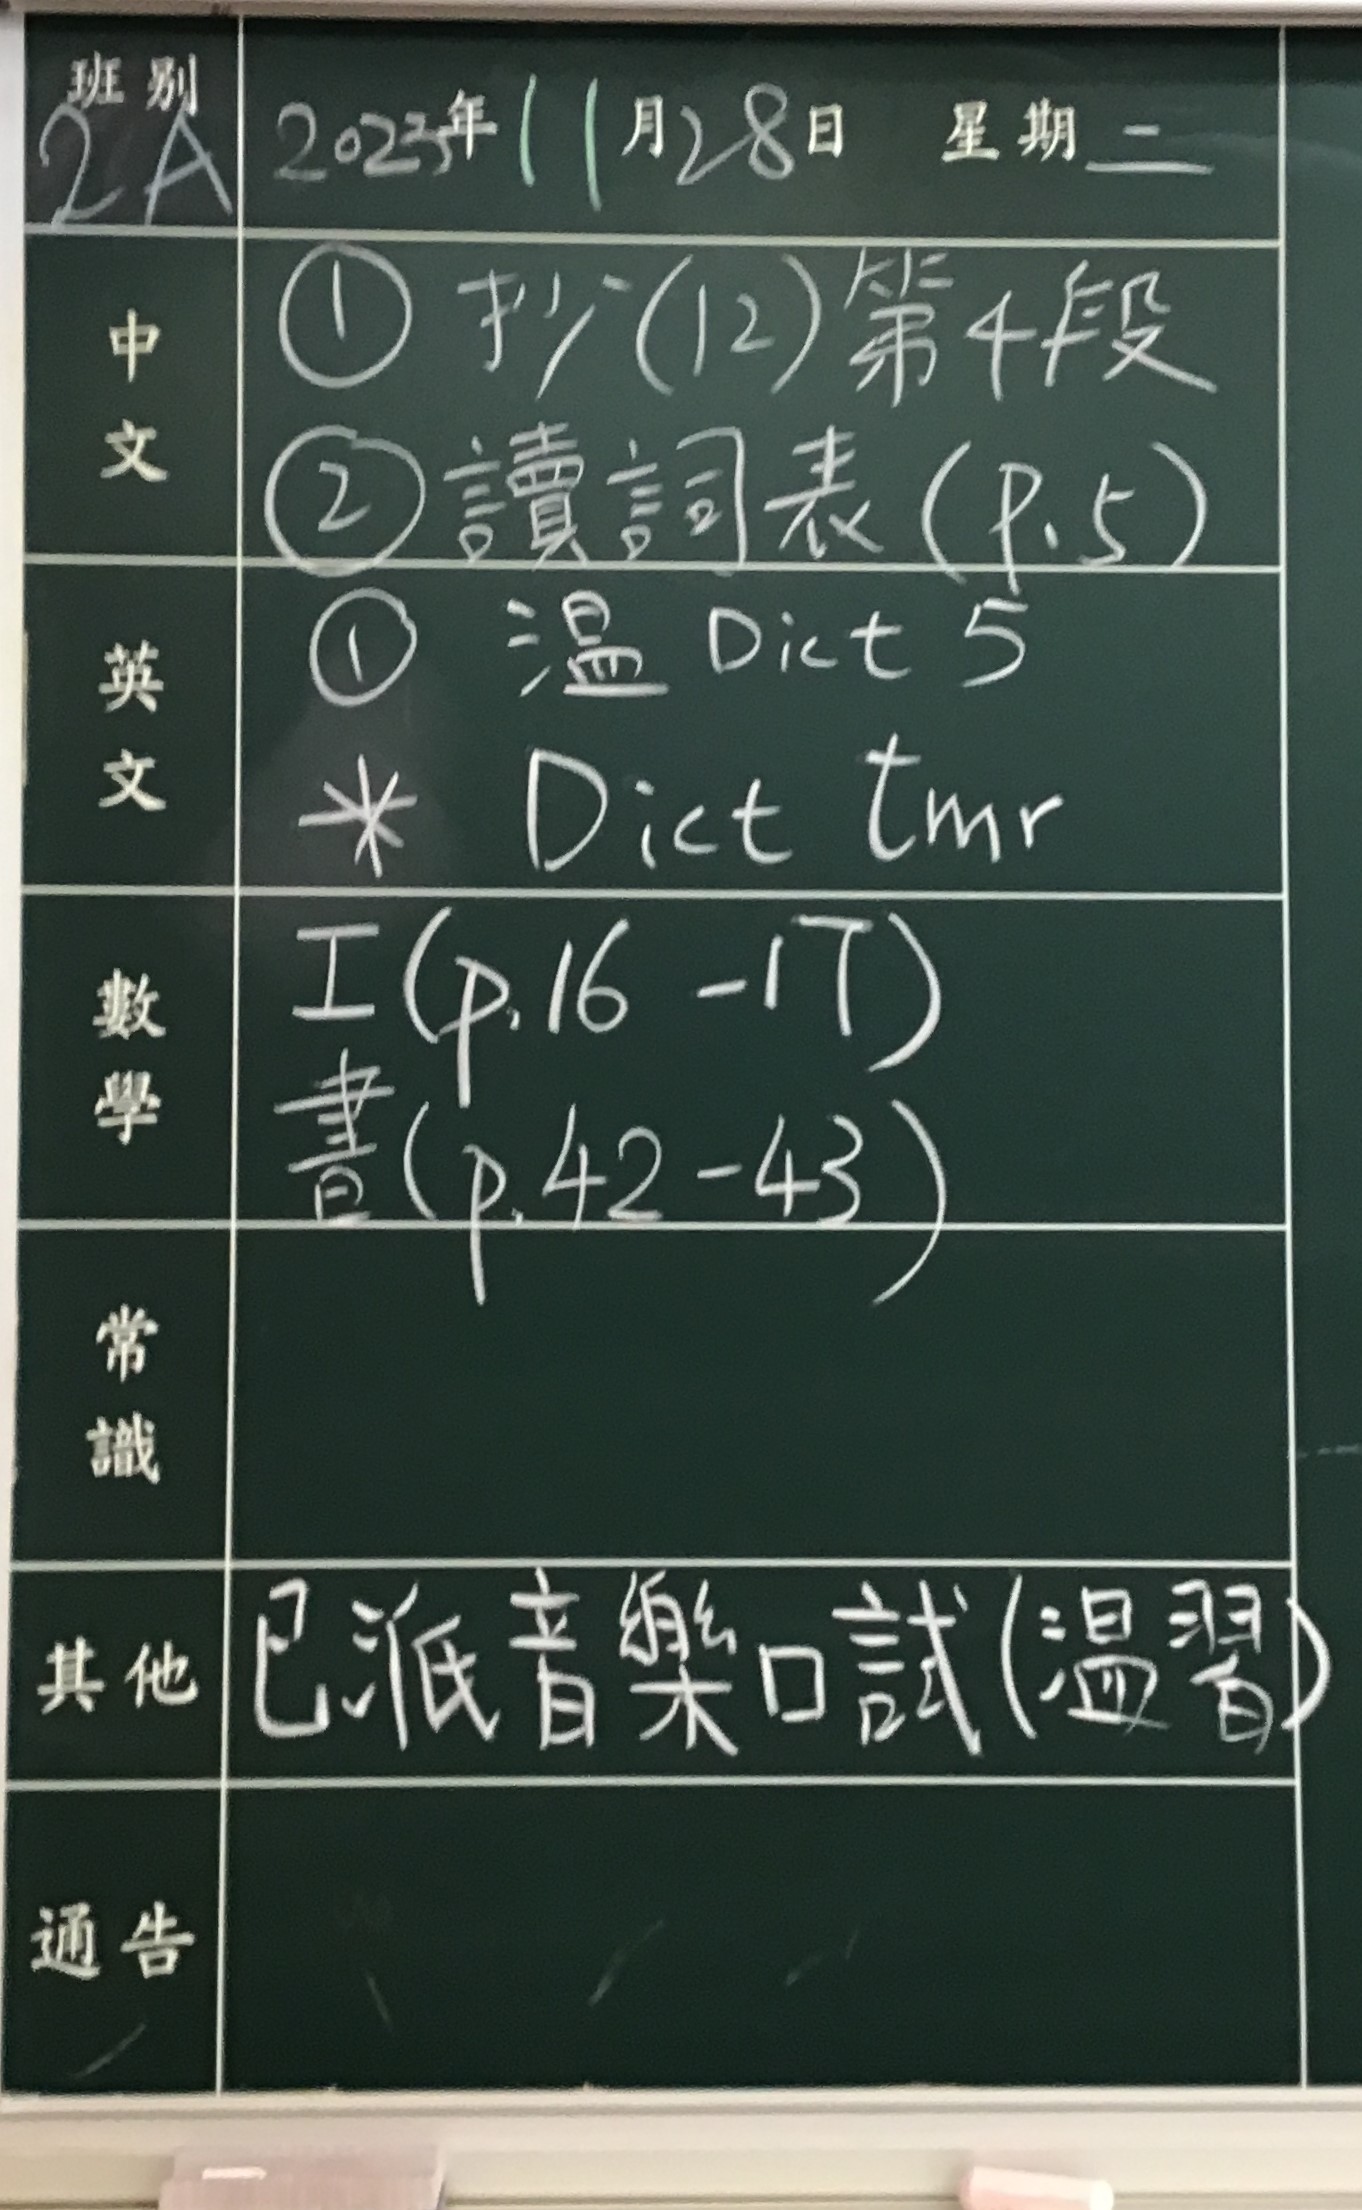 班別 2023年11月28日 星期二
2A
中文
① 抄(12)第4段
② 讀詞表(p.5)
英文
① 溫 Dict 5
* Dict tmr
數學
工(p.16-17)
書(p.42-43)
常識
其他
已派音樂口試(溫習)
通告